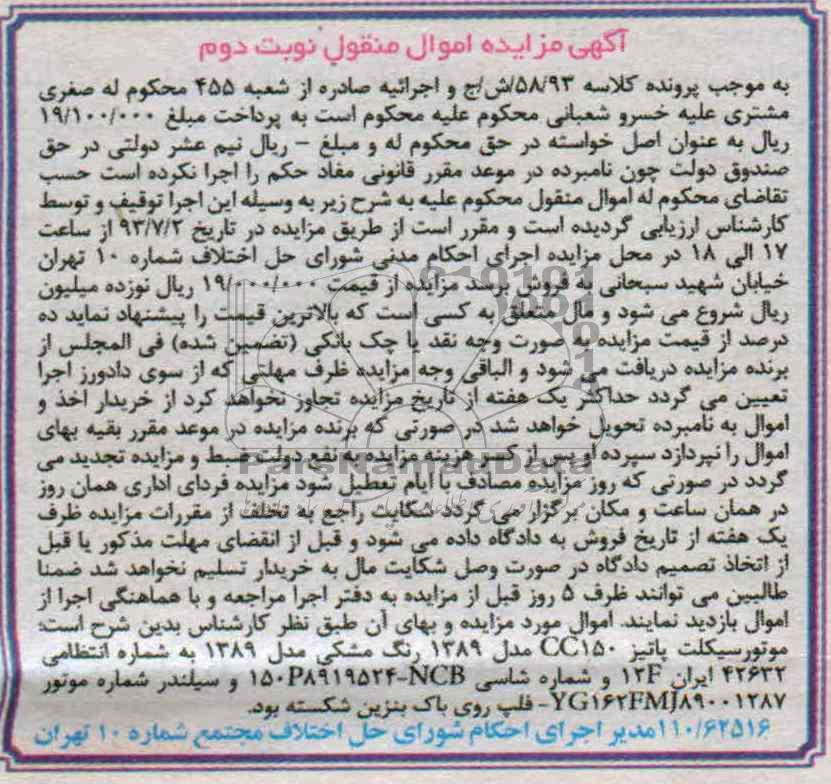 آگهی مزایده اموال منقول نوبت دوم
به موجب پرونده کلاسه ۵۸/۹۳/ش/ج و اجرائیه صادره از شعبه ۴۵۵ محکوم له صغری
مشتری علیه خسرو شعبانی محکوم علیه محکوم است به پرداخت مبلغ ۱۹/۱۰۰/۰۰۰
ریال به عنوان اصل خواسته در حق محکوم له و مبلغ – ریال نیم عشر دولتی در حق
صندوق دولت چون نامبرده در موعد مقرر قانونی مفاد حکم را اجرا نکرده است حسب
تقاضای محکوم له اموال منقول محکوم علیه به شرح زیر به وسیله این اجرا توقیف و توسط
کارشناس ارزیابی گردیده است و مقرر است از طریق مزایده در تاریخ ۹۳/۷/۲ از ساعت
۱۷ الی ۱۸ در محل مزایده اجرای احکام مدنی شورای حل اختلاف شماره ۱۰ تهران
خیابان شهید سبحانی به فروش برسد مزایده از قیمت ۱۹/۰۰۰/۰۰۰ ریال نوزده میلیون
ریال شروع می شود و مال متعلق به کسی است که بالاترین قیمت را پیشنهاد نماید ده
درصد از قیمت مزایده به صورت وجه نقد یا چک بانکی (تضمین شده) فی المجلس از
برنده مزایده دریافت می شود و الباقی وجه مزایده ظرف مهلتی که از سوی دادورز اجرا
تعیین می گردد حداکثر یک هفته از تاریخ مزایده تجاوز نخواهد کرد از خریدار اخذ و
اموال به نامبرده تحویل خواهد شد در صورتی که برنده مزایده در موعد مقرر بقیه بهای
اموال را نپردازد سپرده او پس از کسر هزینه مزایده به نفع دولت ضبط و مزایده تجدید می
گردد در صورتی که روز مزایده مصادف با ایام تعطیل شود مزایده فردای اداری همان روز
در همان ساعت و مکان برگزار می گردد شکایت راجع به تخلف از مقررات مزایده ظرف
یک هفته از تاریخ فروش به دادگاه داده می شود و قبل از انقضای مهلت مذکور یا قبل
از اتخاذ تصمیم دادگاه در صورت وصل شکایت مال به خریدار تسلیم نخواهد شد ضمنا
طالبین می توانند ظرف ۵ روز قبل از مزایده به دفتر اجرا مراجعه و با هماهنگی اجرا از
اموال بازدید نمایند. اموال مورد مزایده و بهای آن طبق نظر کارشناس بدین شرح است:
موتورسیکلت پاتیز CC۱۵۰ مدل ۱۳۸۹ رنگ مشکی مدل ۱۳۸۹ به شماره انتظامی
۴۲۶۳۲ ایران ۱۲۴ و شماره شاسی ۱۵۰P۸۹۱۹۵۲۴-NCB و سیلندر شماره موتور
YG۱۶۲FMJ۸۹۰۰۱۲۸۷- فلپ روی باک بنزین شکسته بود.
۱۱۰/۶۲۵۱۶ مدیر اجرای احکام شورای حل اختلاف مجتمع شماره ۱۰ تهران
ParsNamadData